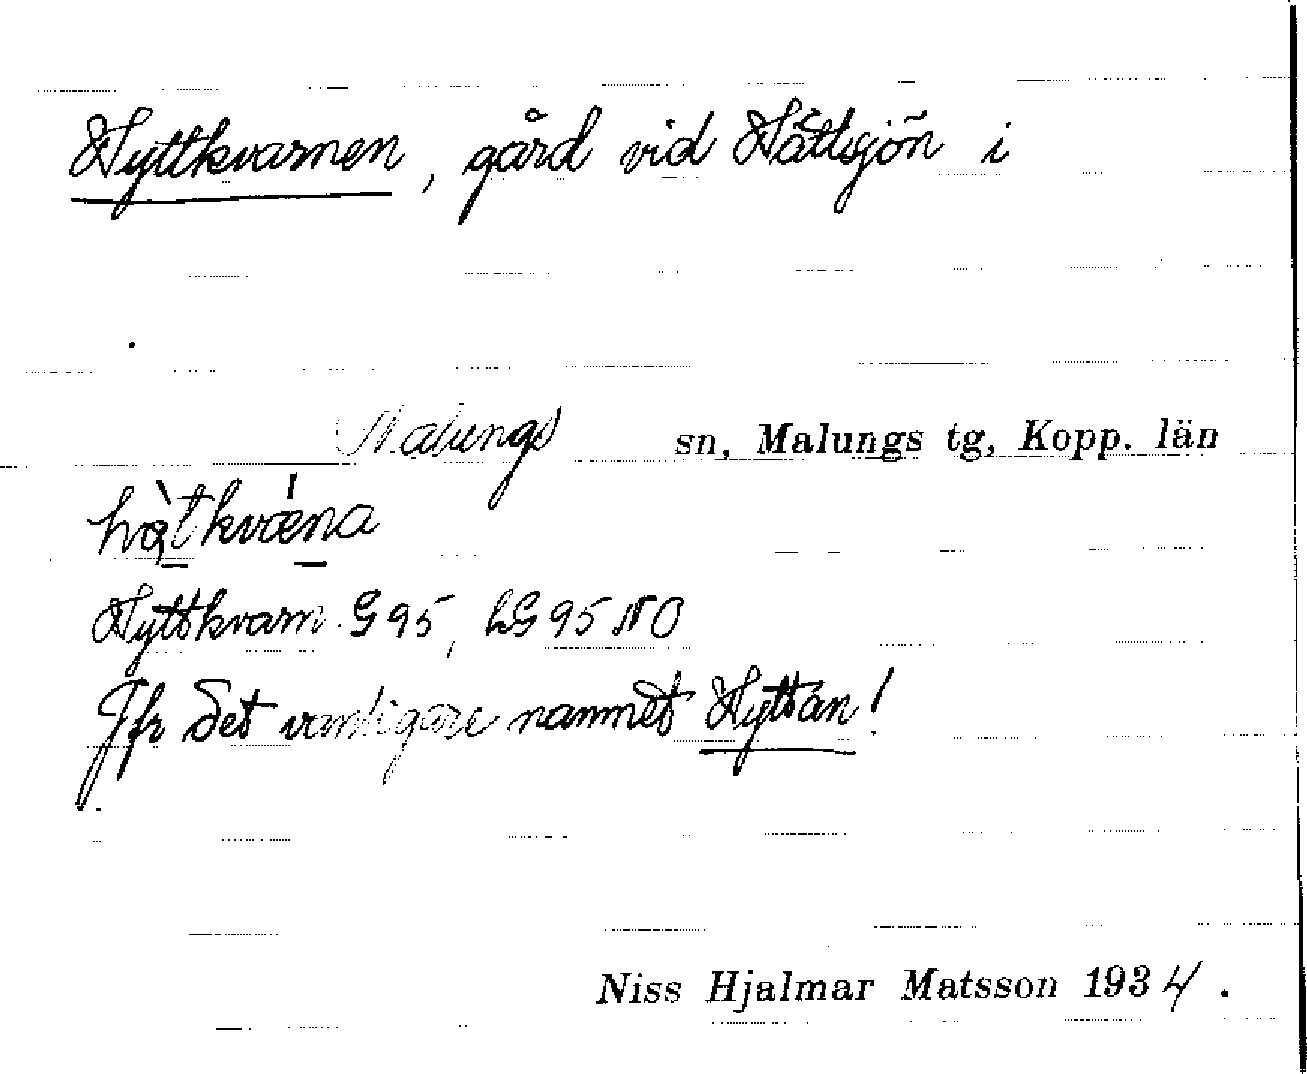 Hyttkvarnen, gård vid Hättsjön i
Malungs sn, Malungs tg, Kopp. län
hǫ̀tkvǽna
Hyttkvarn. G 95, LG 95 NO
Jfr det vanligare namnet Hyttan!
Niss Hjalmar Matsson 1934.